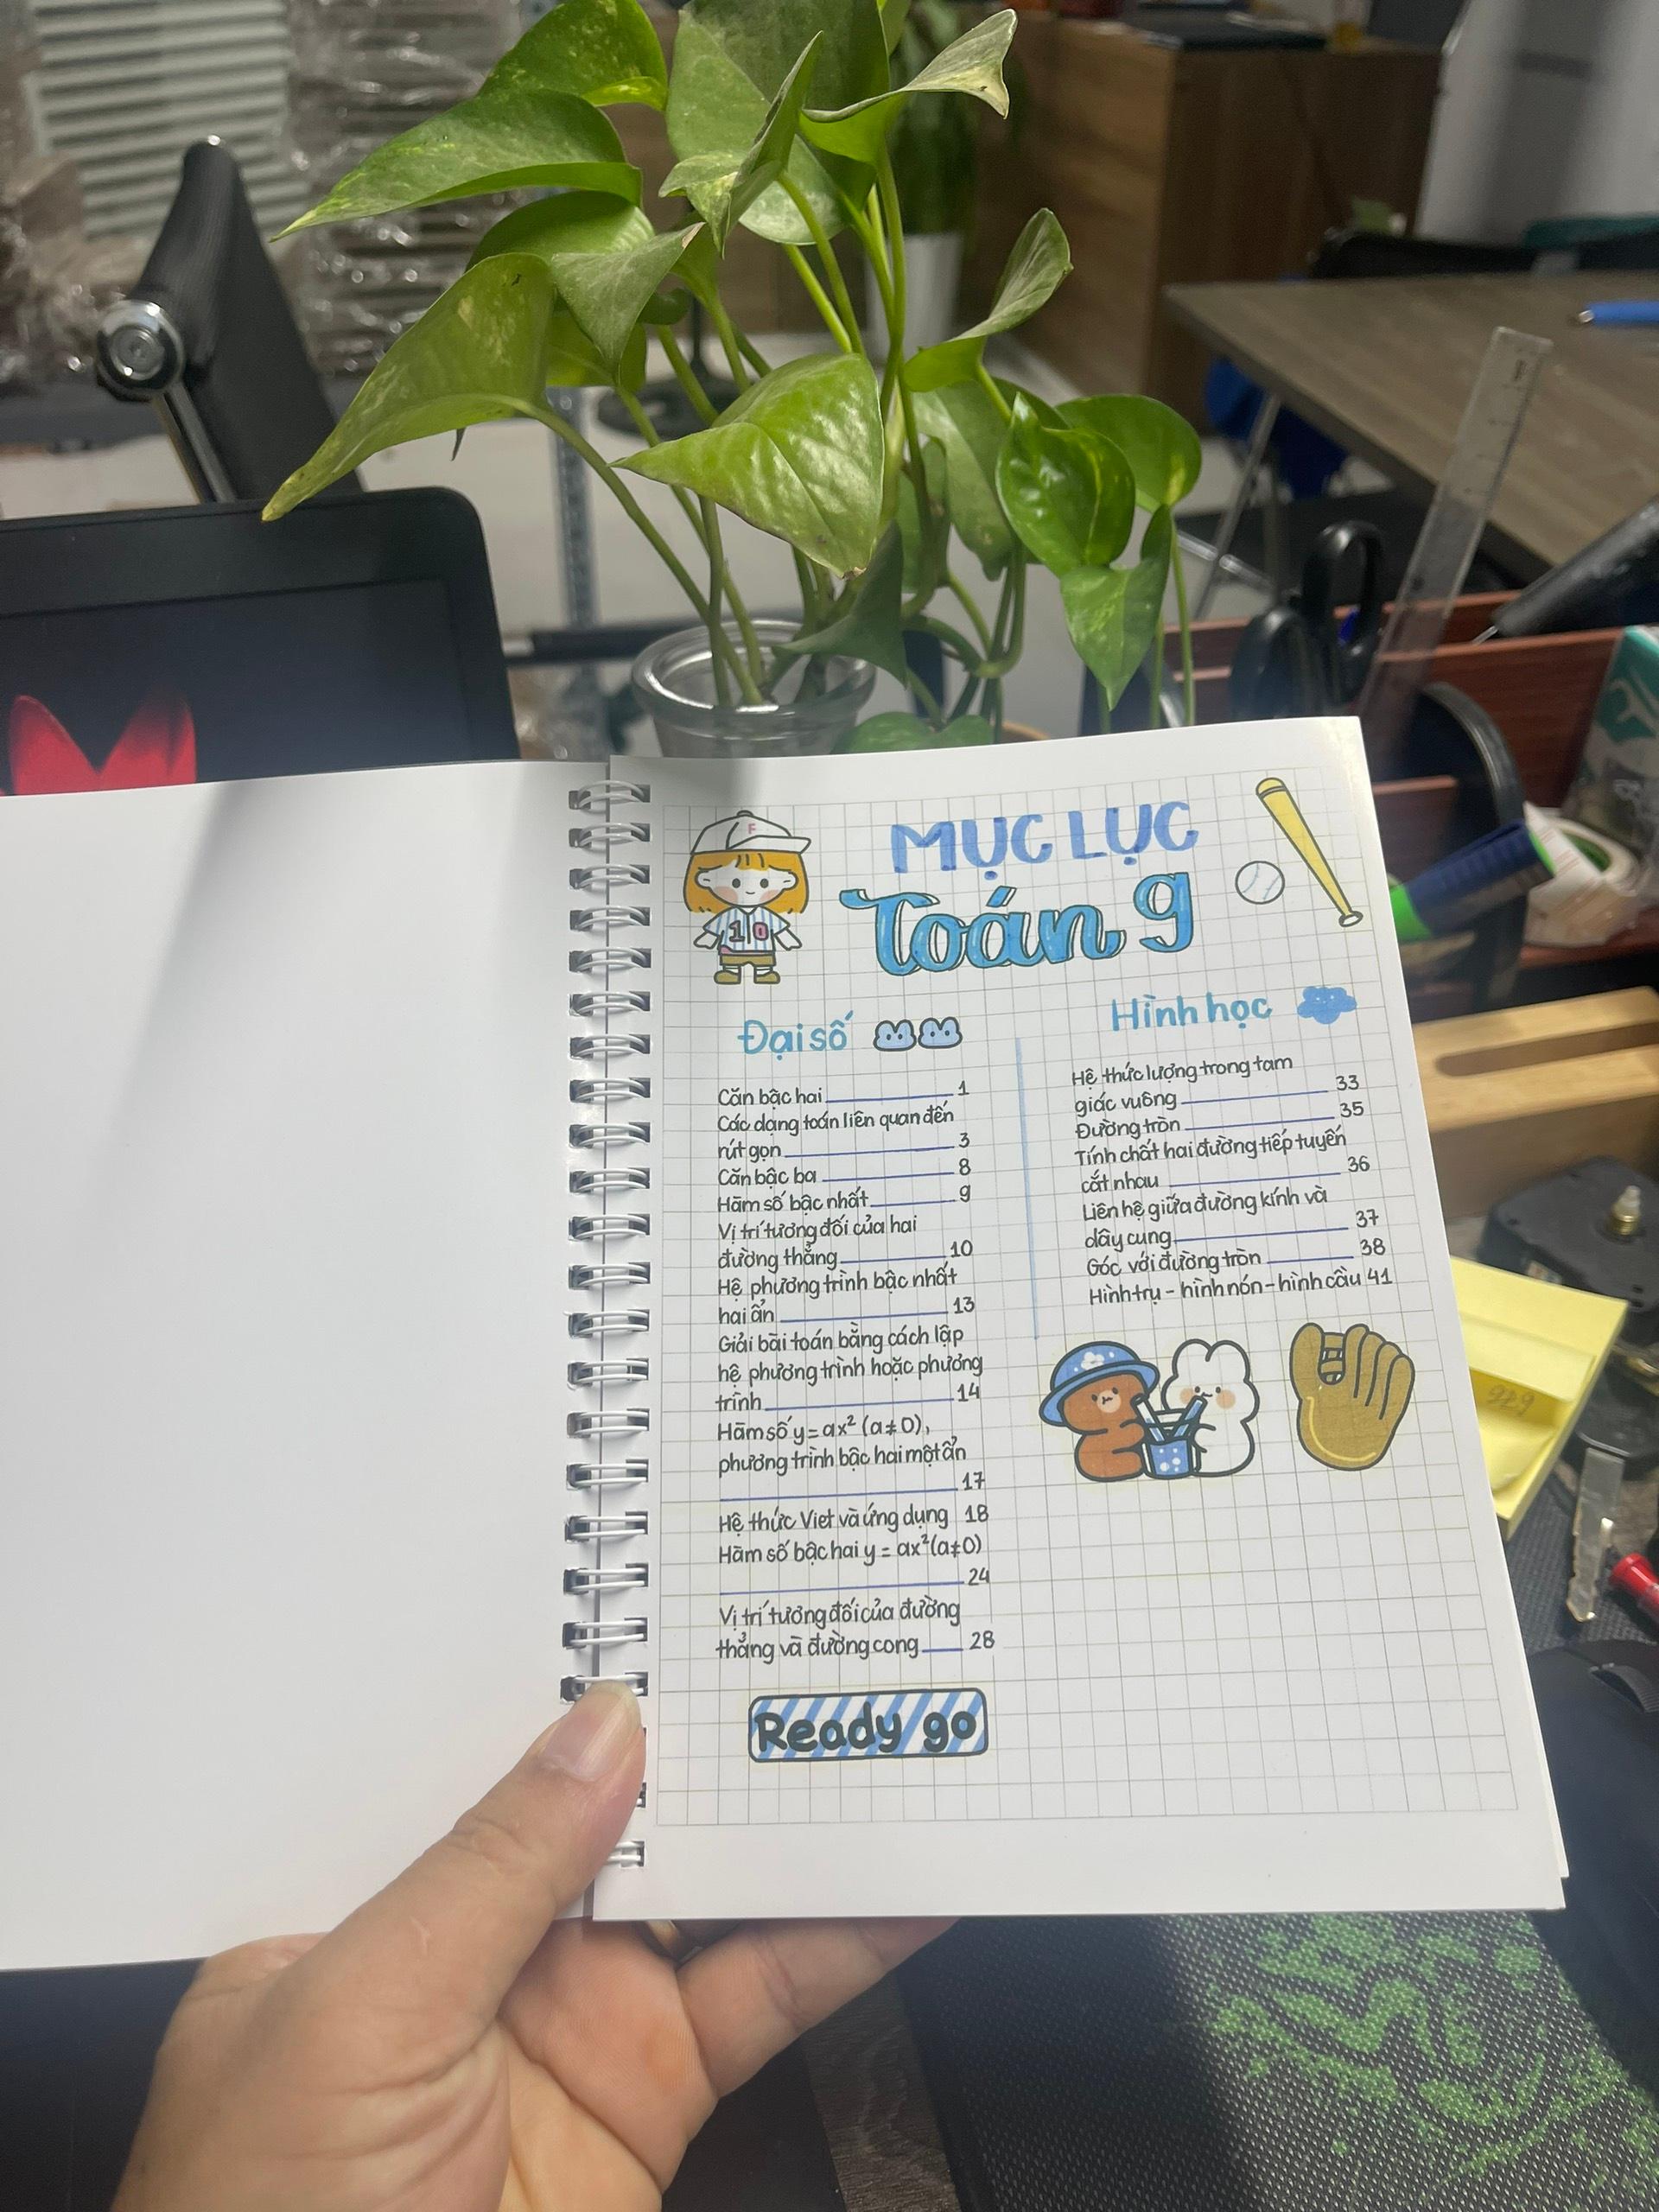 MỤC LỤC
Toán 9
F
10
Đại số
Căn bậc hai 1
Các dạng toán liên quan đến
rút gọn 3
Căn bậc ba 8
Hàm số bậc nhất 9
Vị trí tương đối của hai
đường thẳng 10
Hệ phương trình bậc nhất
hai ẩn 13
Giải bài toán bằng cách lập
hệ phương trình hoặc phương
trình 14
Hàm số y = ax² (a ≠ 0),
phương trình bậc hai một ẩn
17
Hệ thức Viet và ứng dụng 18
Hàm số bậc hai y = ax² (a ≠ 0)
24
Vị trí tương đối của đường
thẳng và đường cong 28
Ready go
Hình học
Hệ thức lượng trong tam
giác vuông 33
Đường tròn 35
Tính chất hai đường tiếp tuyến
cắt nhau 36
Liên hệ giữa đường kính và
dây cung 37
Góc với đường tròn 38
Hình trụ - hình nón - hình cầu 41